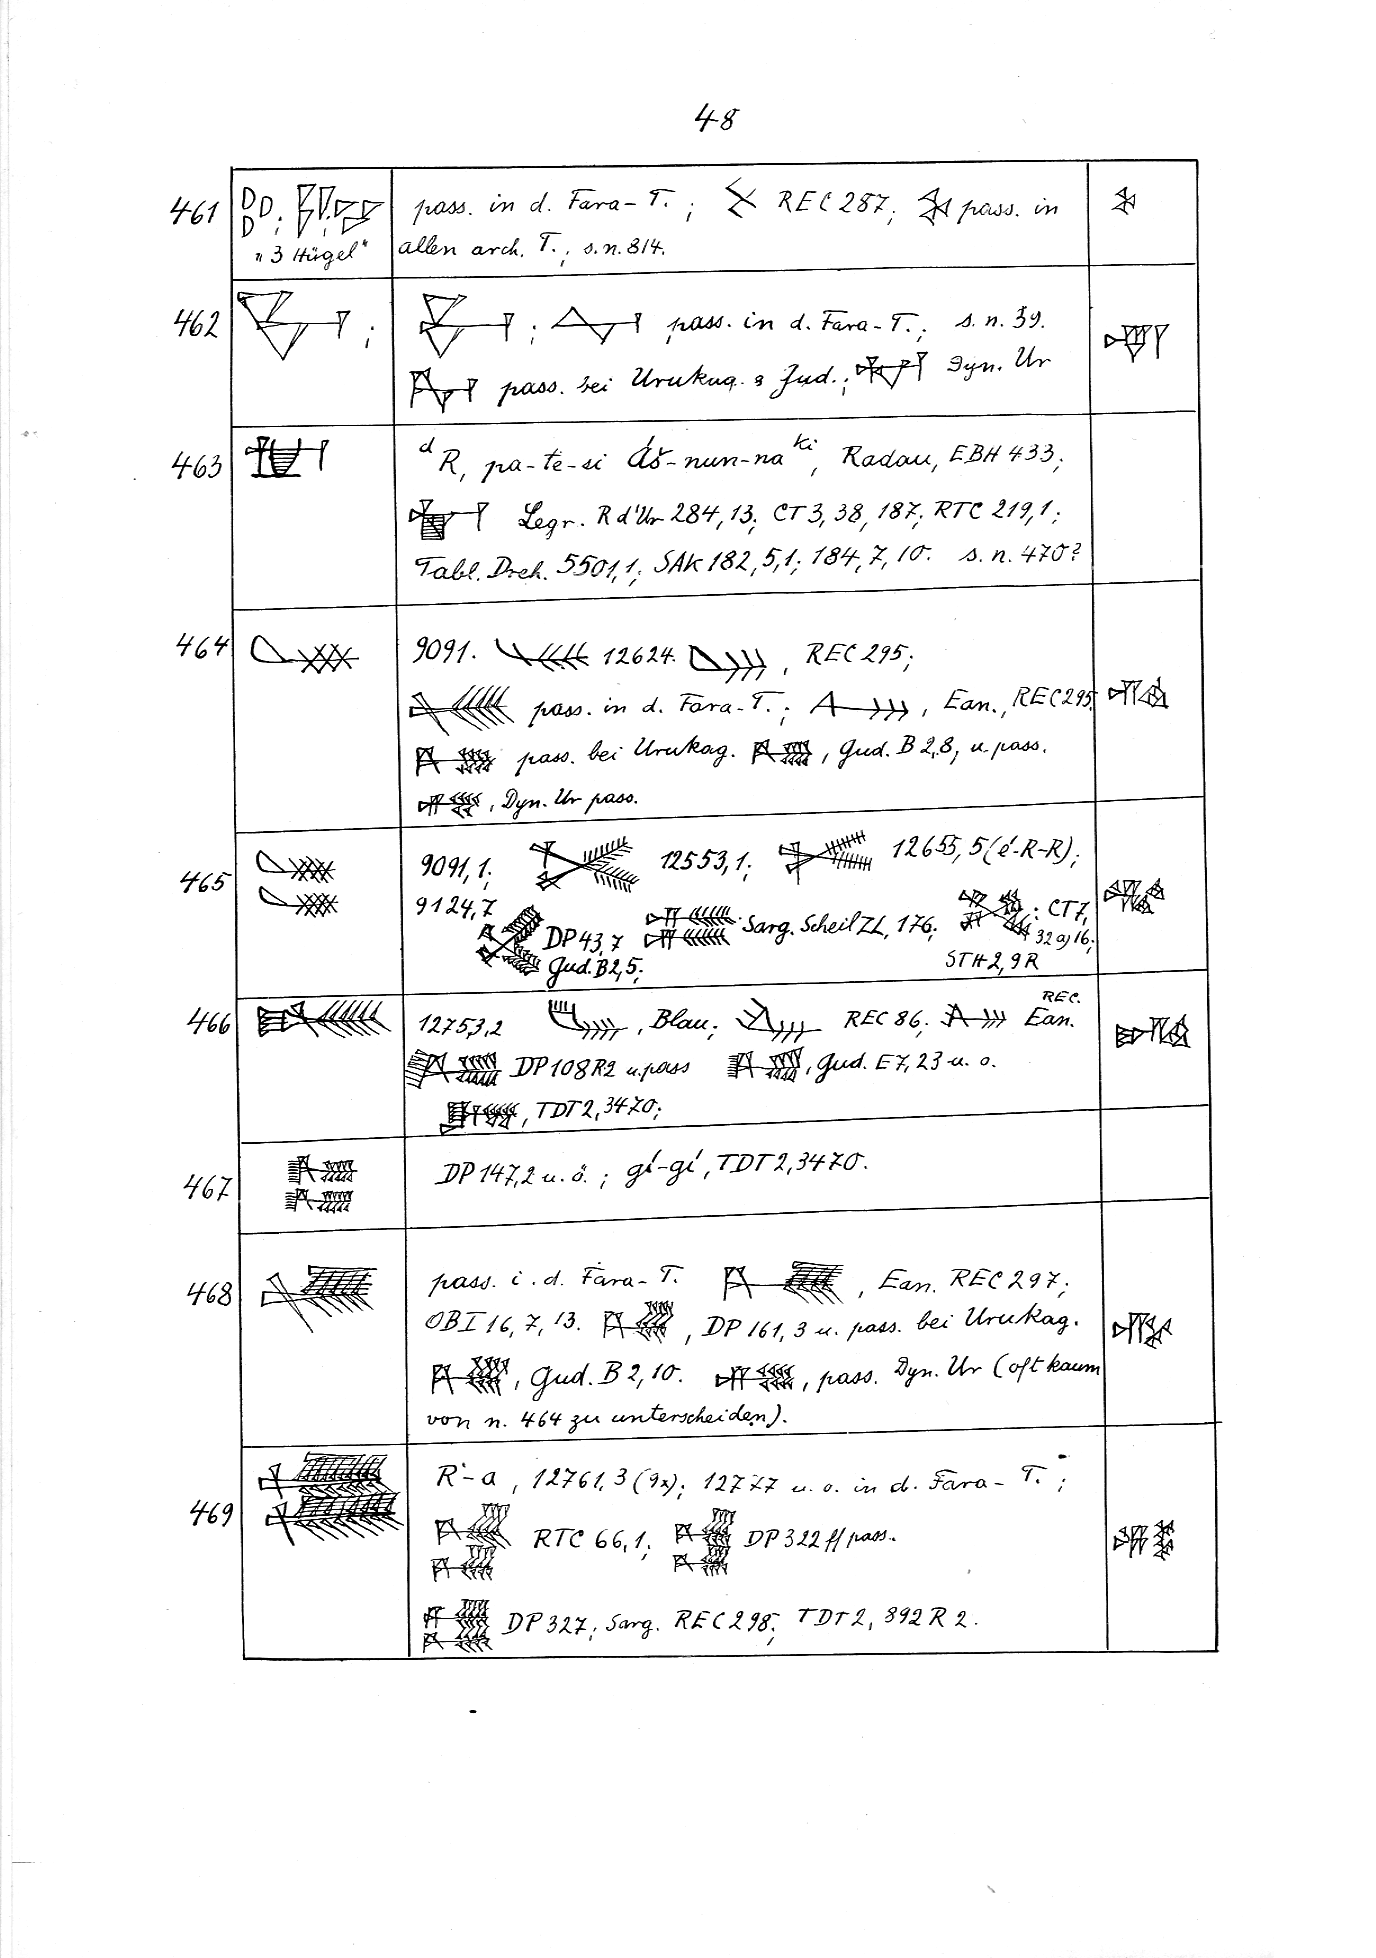 48
461 pass. in d. Fara-T. ; REC 287; pass. in
„3 Hügel“ allen arch. T.; s. n. 814.
462 ; ; pass. in d. Fara-T.; s. n. 39.
pass. bei Urukag. & Gud.; Dyn. Ur
463 ᵈR, pa-te-si Áš-nun-na ᵏⁱ, Radau, EBH 433;
Legr. R d'Ur 284, 13; CT 3, 38, 187; RTC 219, 1;
Tabl. Dreh. 5501, 1; SAK 182, 5, 1; 184, 7, 10. s. n. 470?
464 9091. 12624. , REC 295;
pass. in d. Fara-T.; , Ean., REC 295.
pass. bei Urukag. , Gud. B 2,8, u. pass.
, Dyn. Ur pass.
465 9091, 1; 12553, 1; 12655, 5 (é-R-R);
9124, 7 DP 43, 7 Sarg. Scheil ZL, 176; : CT 7,
32 a) 16;
Gud. B 2, 5; STH 2, 9 R
466 12753, 2 , Blau; REC 86; REC. Ean.
DP 108 R 2 u. pass , Gud. E 7, 23 u. o.
, TDT 2, 3470;
467 DP 147, 2 u. ö. ; gí-gí, TDT 2, 3470.
468 pass. i. d. Fara-T. , Ean. REC 297;
OBI 16, 7, 13. , DP 161, 3 u. pass. bei Urukag.
, Gud. B 2, 10. , pass. Dyn. Ur (oft kaum
von n. 464 zu unterscheiden).
469 R-a, 12761, 3 (9x); 12777 u. o. in d. Fara-T. ;
RTC 66, 1; DP 322 ff pass.
DP 327; Sarg. REC 298; TDT 2, 892 R 2.